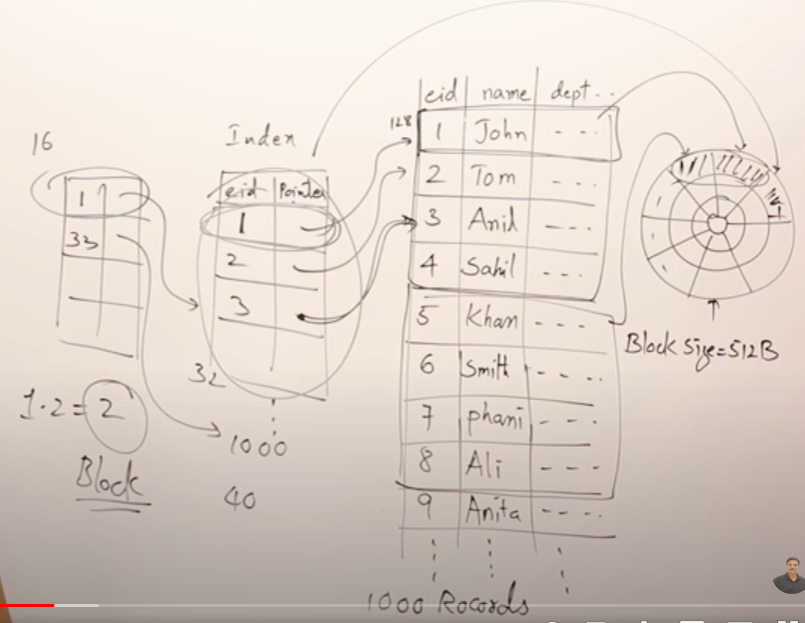 16
1
33
1.2 = 2
Block
Index
eid Pointer
1
2
3
32
1000
40
eid name dept..
128
1 John - - -
2 Tom - - -
3 Anil - - -
4 Sahil - - -
5 Khan - - -
6 Smith - - - .
7 phani - - -
8 Ali - - -
9 Anita - - - .
1000 Rocords
Block Size=512B